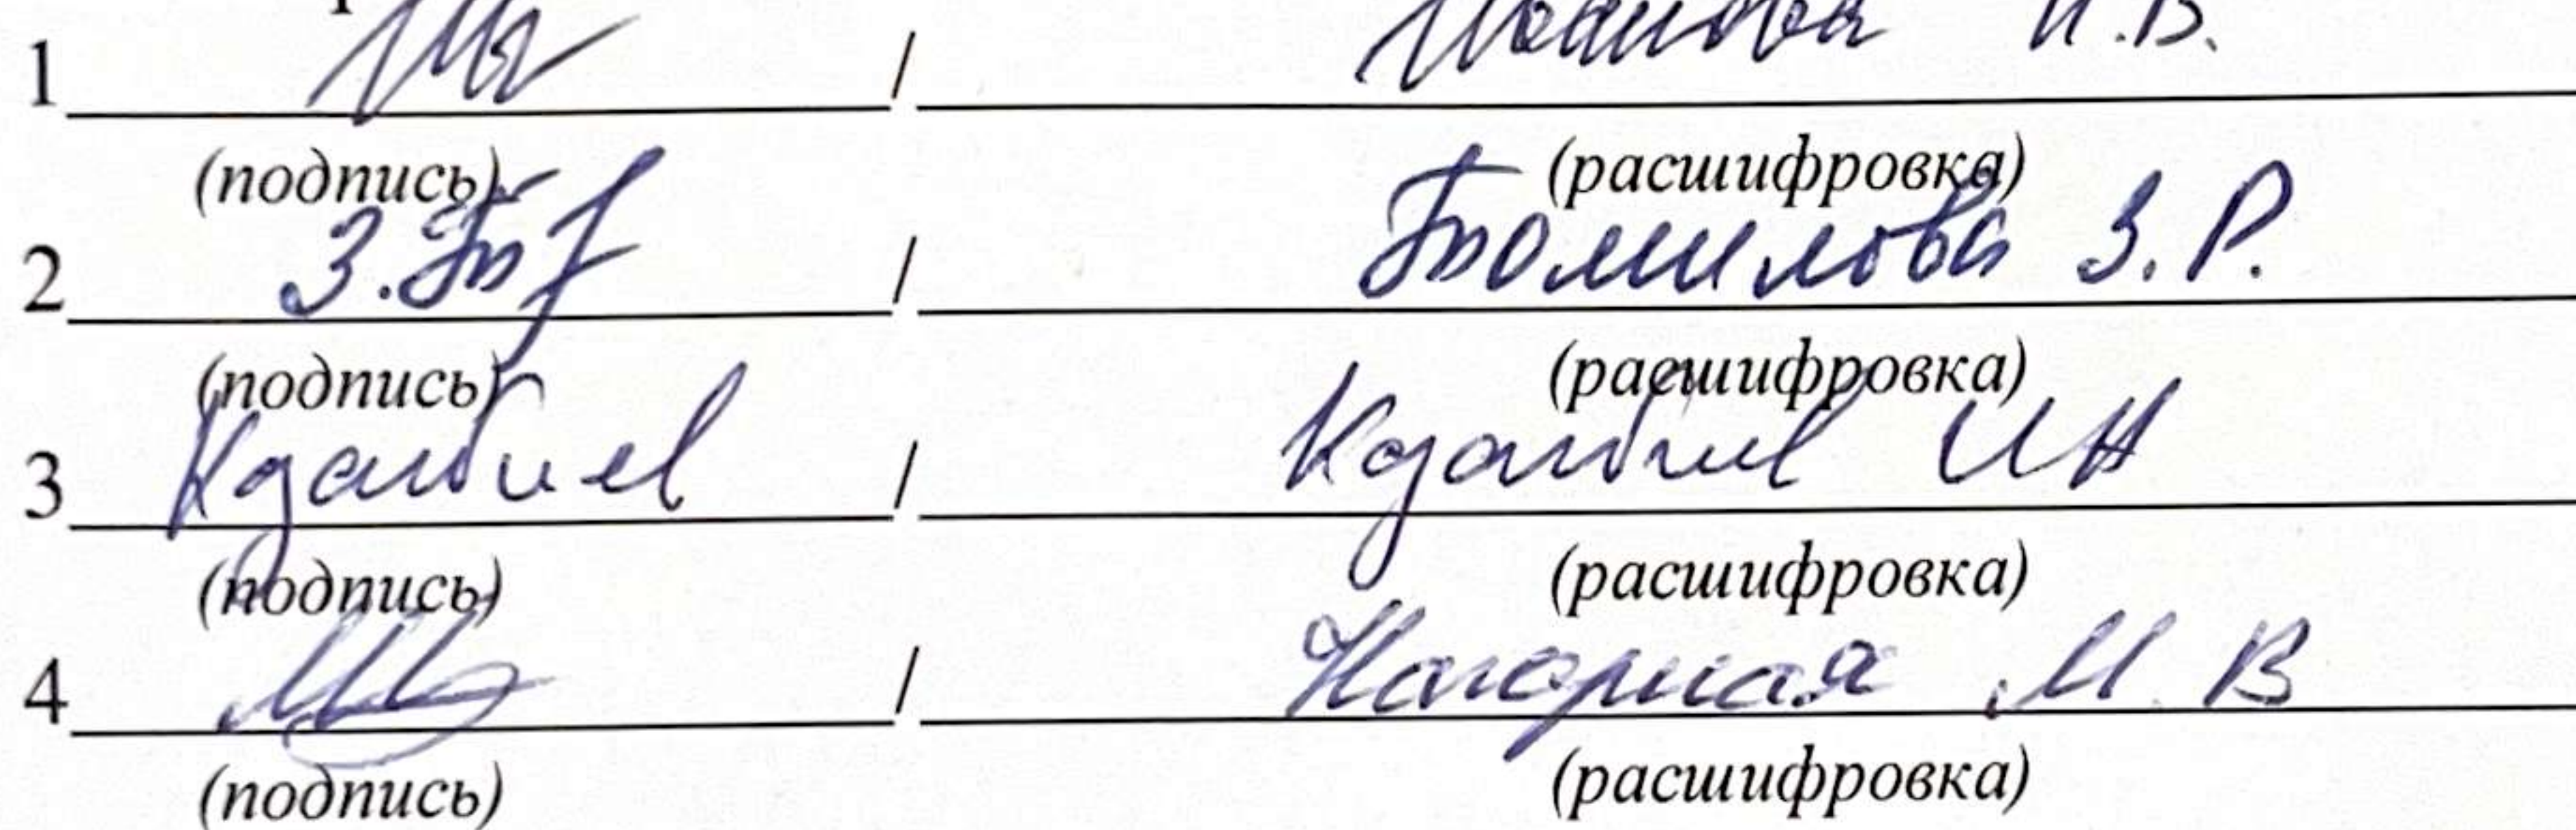 1 / Иванова И.В.
(подпись) (расшифровка)
2 З. / Томилова З.Р.
(подпись) (расшифровка)
3 / ИН
(подпись) (расшифровка)
4 / Нагорная М.В
(подпись) (расшифровка)